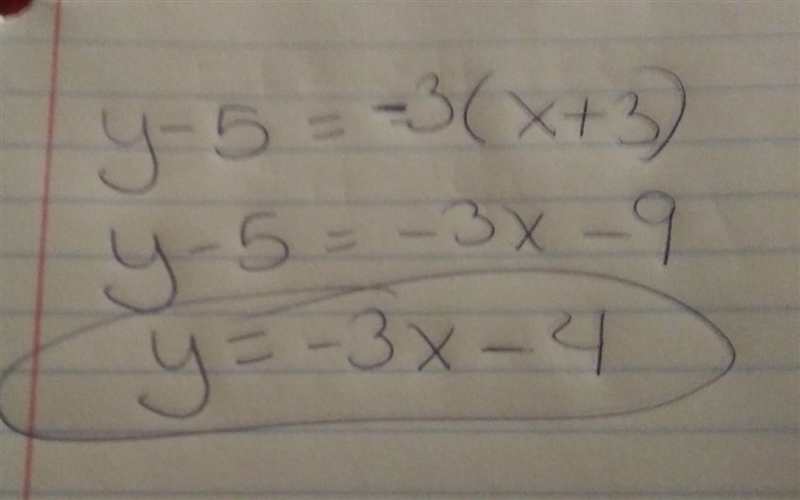 y-5 = -3(x+3)
y-5 = -3x -9
y = -3x -4